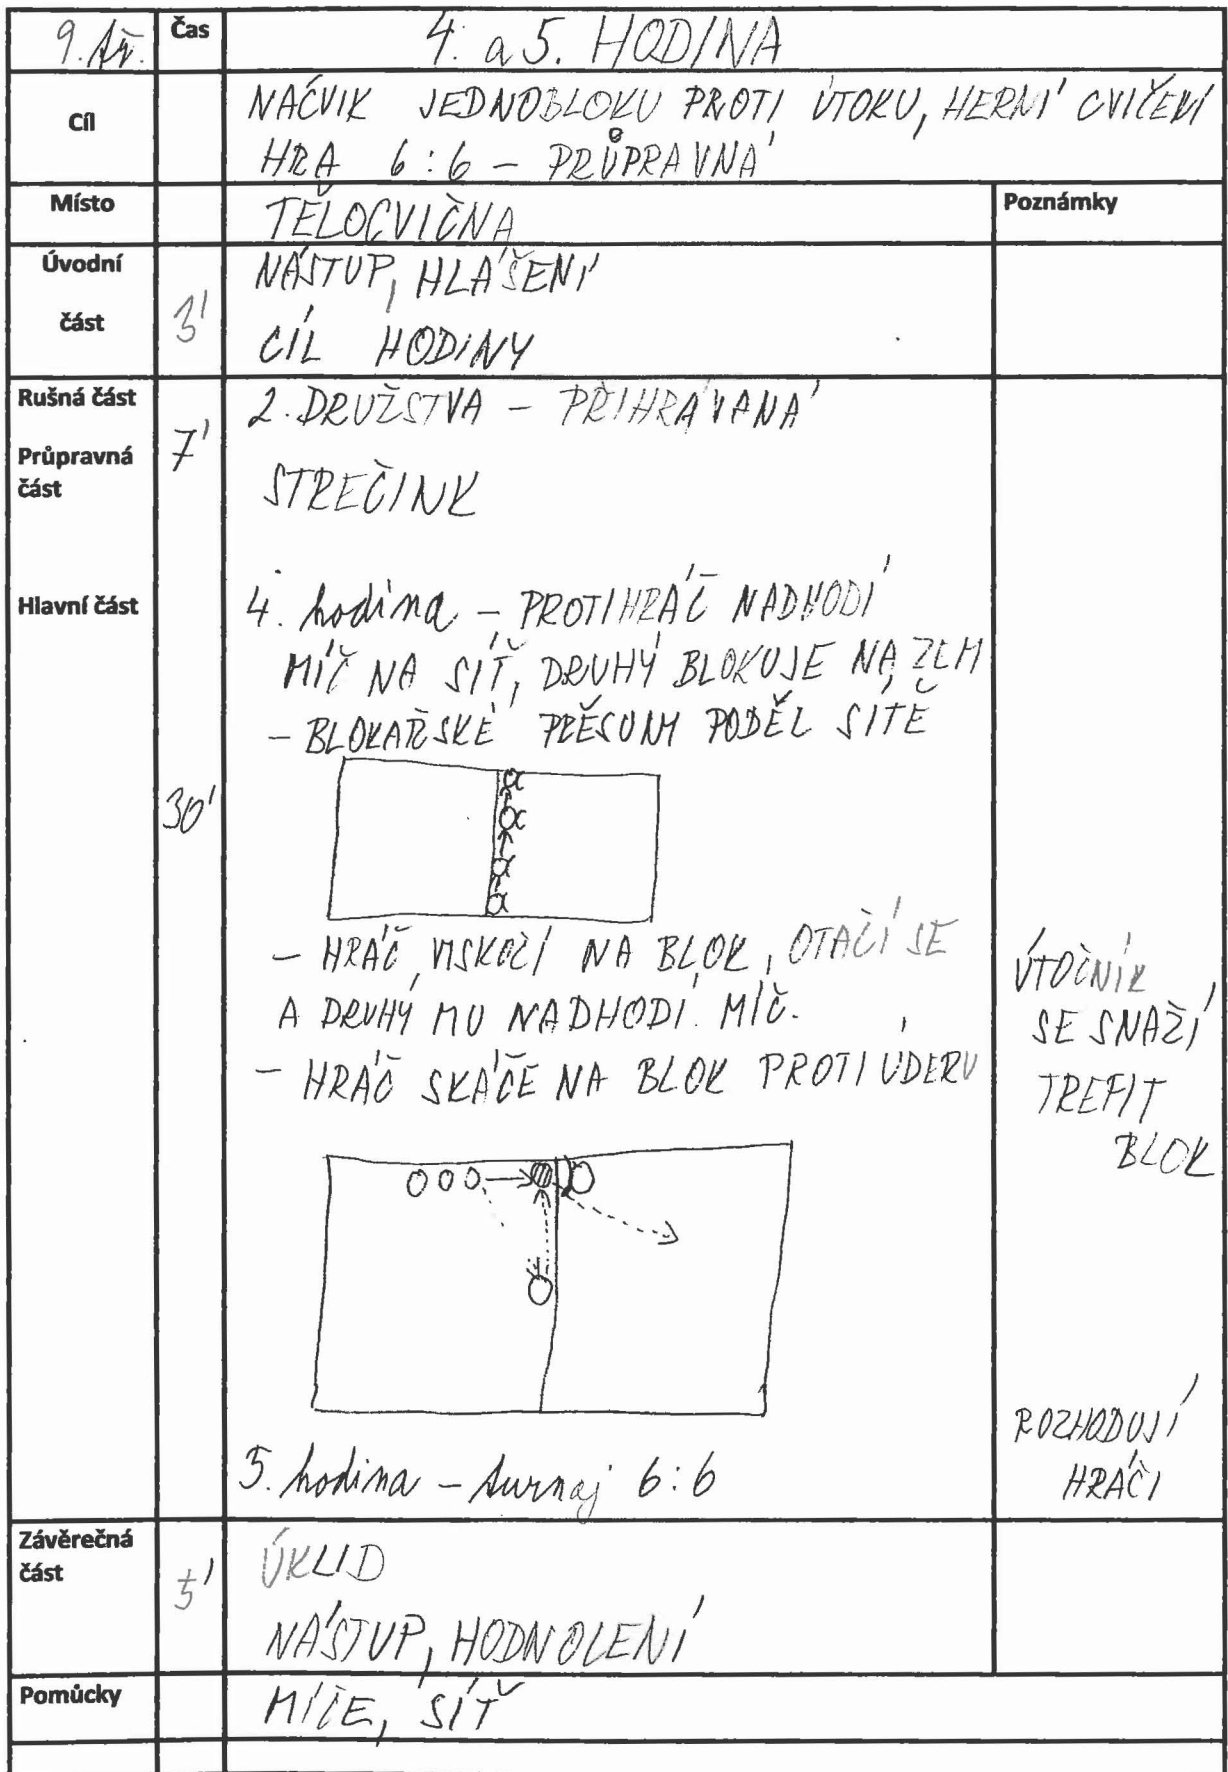 9. tř. Čas 4. a 5. HODINA
Cíl NÁCVIK JEDNOBLOKU PROTI ÚTOKU, HERNÍ CVIČENÍ
HRA 6:6 - PRŮPRAVNÁ
Místo TĚLOCVIČNA Poznámky
Úvodní NÁSTUP, HLÁŠENÍ
část 3' CÍL HODINY
Rušná část 2. DRUŽSTVA - PŘIHRÁVANÁ
Průpravná 7'
část STREČINK
Hlavní část 4. hodina - PROTIHRÁČ NADHODÍ
MÍČ NA SÍŤ, DRUHÝ BLOKUJE NA ZEM
- BLOKAŘSKÉ PŘESUNY PODÉL SÍTĚ
30'
- HRÁČ VYSKOČÍ NA BLOK, OTAČÍ SE
A DRUHÝ MU NADHODÍ MÍČ.
- HRÁČ SKÁČE NA BLOK PROTI ÚDERU
ÚTOČNÍK
SE SNAŽÍ
TREFIT
BLOK
5. hodina - turnaj 6:6
ROZHODUJÍ
HRÁČI
Závěrečná
část 5' ÚKLID
NÁSTUP, HODNOLENÍ
Pomůcky MÍČE, SÍŤ